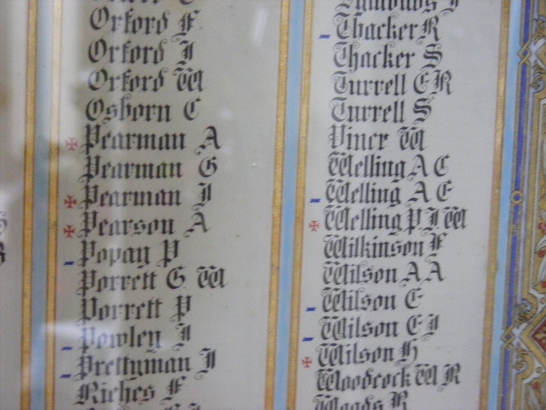 Orford F
Orford J
Orford W
Osborn C
Pearman A
Pearman G
Pearman J
Pearson A
Popay P
Porrett G W
Porrett P
Powley J
Prettyman J
Riches F
Thacker R
Thacker S
Turrell E R
Turrell S
Viner W
Welling A C
Welling A E
Welling P J W
Wilkinson F
Wilson A A
Wilson C
Wilson E J
Wilson H
Woodcock W R
Woods R